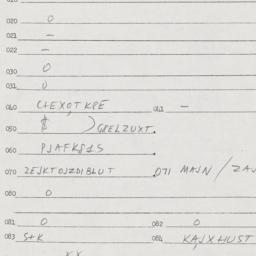 020 0
021 -
022 -
030 0
031 0
040 C+EXOTKPE 041 -
050 $ ) GPELZUXT.
060 PJAFK$1S
070 ZEJKTOJZDIBLUT. 071 MAJN / ZAJ
080 0
081 0 082 0
083 S+K 084 KAJXHUST
XX